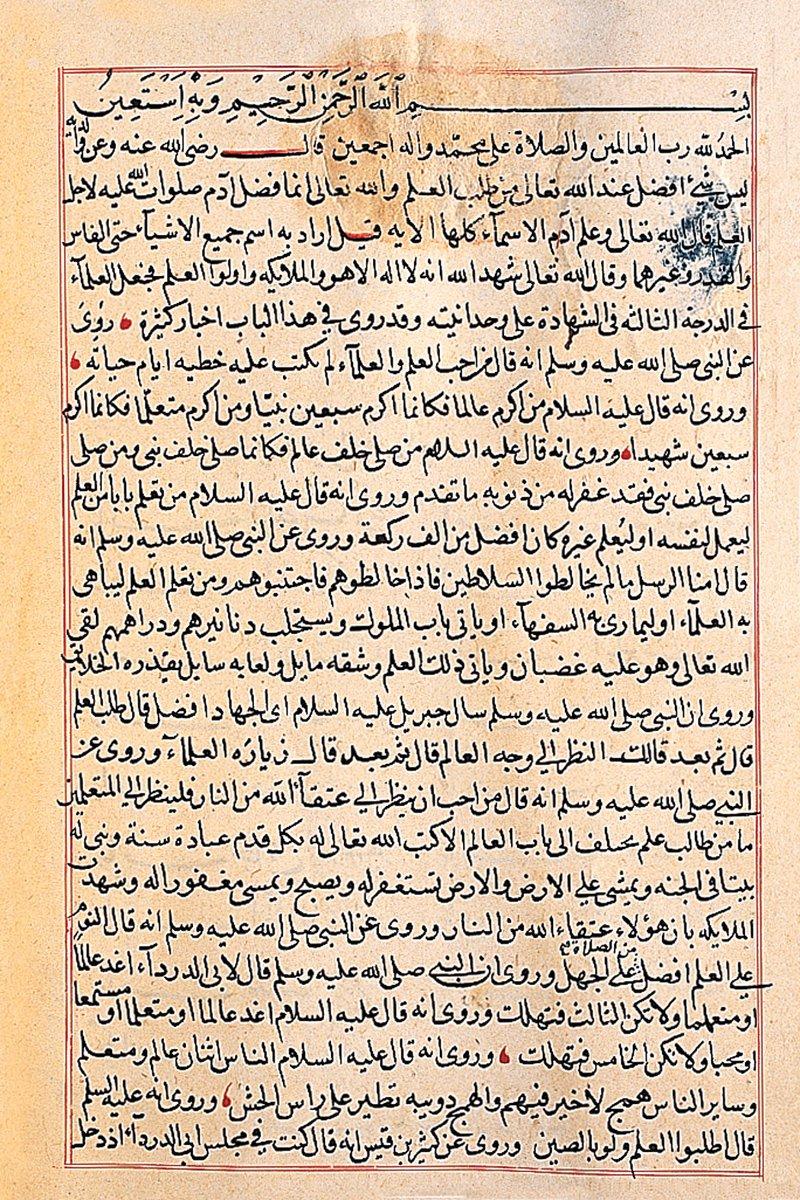 بِسْمِ اللّٰهِ الرَّحْمٰنِ الرَّحِيمِ وَبِهِ اَسْتَعِينُ
الحمد لله رب العالمين والصلاة على محمّد واله اجمعين قال رضى الله عنه وعن والديه
ليس شئ افضل عند الله تعالى من طلب العلم والله تعالى انما فضل آدم صلوات الله عليه لاجل
العلم قال الله تعالى وعلم آدم الاسمآء كلها الايه قيل اراد به اسم جميع الاشيآء حتى الفاس
والقدر وغيرهما وقال الله تعالى شهد الله انه لا اله الا هو والملايكه واولوا العلم فجعل العلمآء
فى الدرجة الثالثه فى الشهادة على وحدانيته وقد روى فى هذا الباب اخبار كثيرة روى
عن النبى صلى الله عليه وسلم انه قال من احب العلم والعلمآء لم يكتب عليه خطيه ايام حياته
وروى انه قال عليه السلام من اكرم عالما فكانما اكرم سبعين نبيّا ومن اكرم متعلّما فكانما اكرم
سبعين شهيدا وروى انه قال عليه السلام من صلى خلف عالم فكانما صلى خلف نبى ومن صلى
صلى خلف نبى فقد غفر له من ذنوبه ما تقدم وروى انه قال عليه السلام من تعلم بابا من العلم
ليعمل لنفسه او ليُعلم غيره كان افضل من الف ركعة وروى عن النبى صلى الله عليه وسلم انه
قال امنا الرسل ما لم يخالطوا السلاطين فاذا خالطوهم فاجتنبوهم ومن تعلم العلم ليباهى
به العلمآء او ليمارى به السفهآء او ياتى باب الملوك ويستجلب دنانيرهم ودراهمهم لقى
الله تعالى وهو عليه غضبان وياتى ذلك العلم وشقه مايل ولعابه سايل يقذره الخلايق
وروى ان النبى صلى الله عليه وسلم سال جبريل عليه السلام اى الجهاد افضل قال طلب العلم
قال ثم بعد قال النظر الى وجه العالم قال ثم بعد قال زيارة العلمآء وروى عن
النبى صلى الله عليه وسلم انه قال من احب ان ينظر الى عتقآء الله من النار فلينظر الى المتعلمين
ما من طالب علم يختلف الى باب العالم الا كتب الله تعالى له بكل قدم عبادة سنة وبنى له
بيتا فى الجنه ويمشى على الارض والارض تستغفر له ويصبح ويمسى مغفورا له وشهدت
الملايكه بان هؤلاء عتقاء الله من النار وروى عن النبى صلى الله عليه وسلم انه قال النوم
على العلم افضل من الصلاة على الجهل وروى ان النبى صلى الله عليه وسلم قال لابى الدردآء اغد عالما
او متعلما ولا تكن الثالث فتهلك وروى انه قال عليه السلام اغد عالما او متعلما او مستمعا
او محبا ولا تكن الخامس فتهلك وروى انه قال عليه السلام الناس اثنان عالم ومتعلم
وساير الناس همج لا خير فيهم والهمج دويبه تطير على راس الحش وروى انه عليه السلم
قال اطلبوا العلم ولو بالصين وروى عن كثير بن قيس انه قال كنت فى مجلس ابى الدردآء اذ دخل